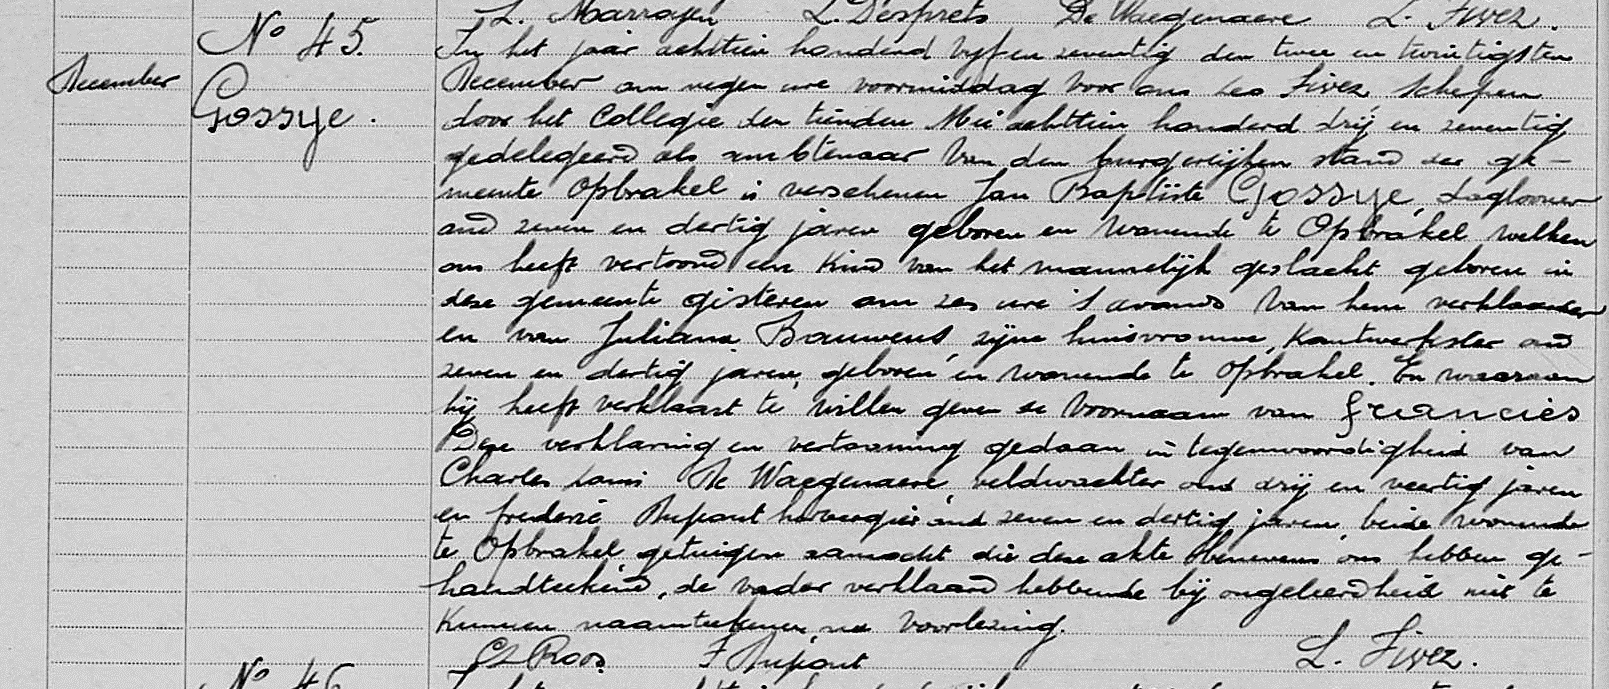 L. Marroyen L. Desprets De Waegenaere L. Fivez.
No 45.
In het jaar achttien honderd vyf en zeventig den twee en twintigsten
December
December om negen ure voormiddag voor ons Leo Fivez, Schepen
Gossye.
door het Collegie den tienden Mei achttien honderd drij en zeventig
gedelegeerd als ambtenaar van den burgerlijken stand der ge-
meente Opbrakel is verschenen Jan Baptiste Gossye, daglooner
oud zeven en dertig jaren geboren en wonende te Opbrakel welken
ons heeft vertoond een kind van het mannelijk geslacht geboren in
deze gemeente gisteren om zes ure 's avonds van hem verklaarder
en van Juliana Bauwens, zijne huisvrouwe, kantwerkster oud
zeven en dertig jaren, geboren en wonende te Opbrakel. En waaraan
hij heeft verklaart te willen geven de voornaam van Francies
Deze verklaring en vertooning gedaan in tegenwoordigheid van
Charles Louis De Waegenaere, veldwachter oud drij en veertig jaren
en frederic Dupont hovergier oud zeven en dertig jaren beide wonende
te Opbrakel getuigen die deze akte benevens ons hebben ge-
handteekend, de vader verklaard hebbende bij ongeleerdheid niet te
kunnen naamteekenen na voorlezing.
Roos F Dupont L. Fivez.
No 46